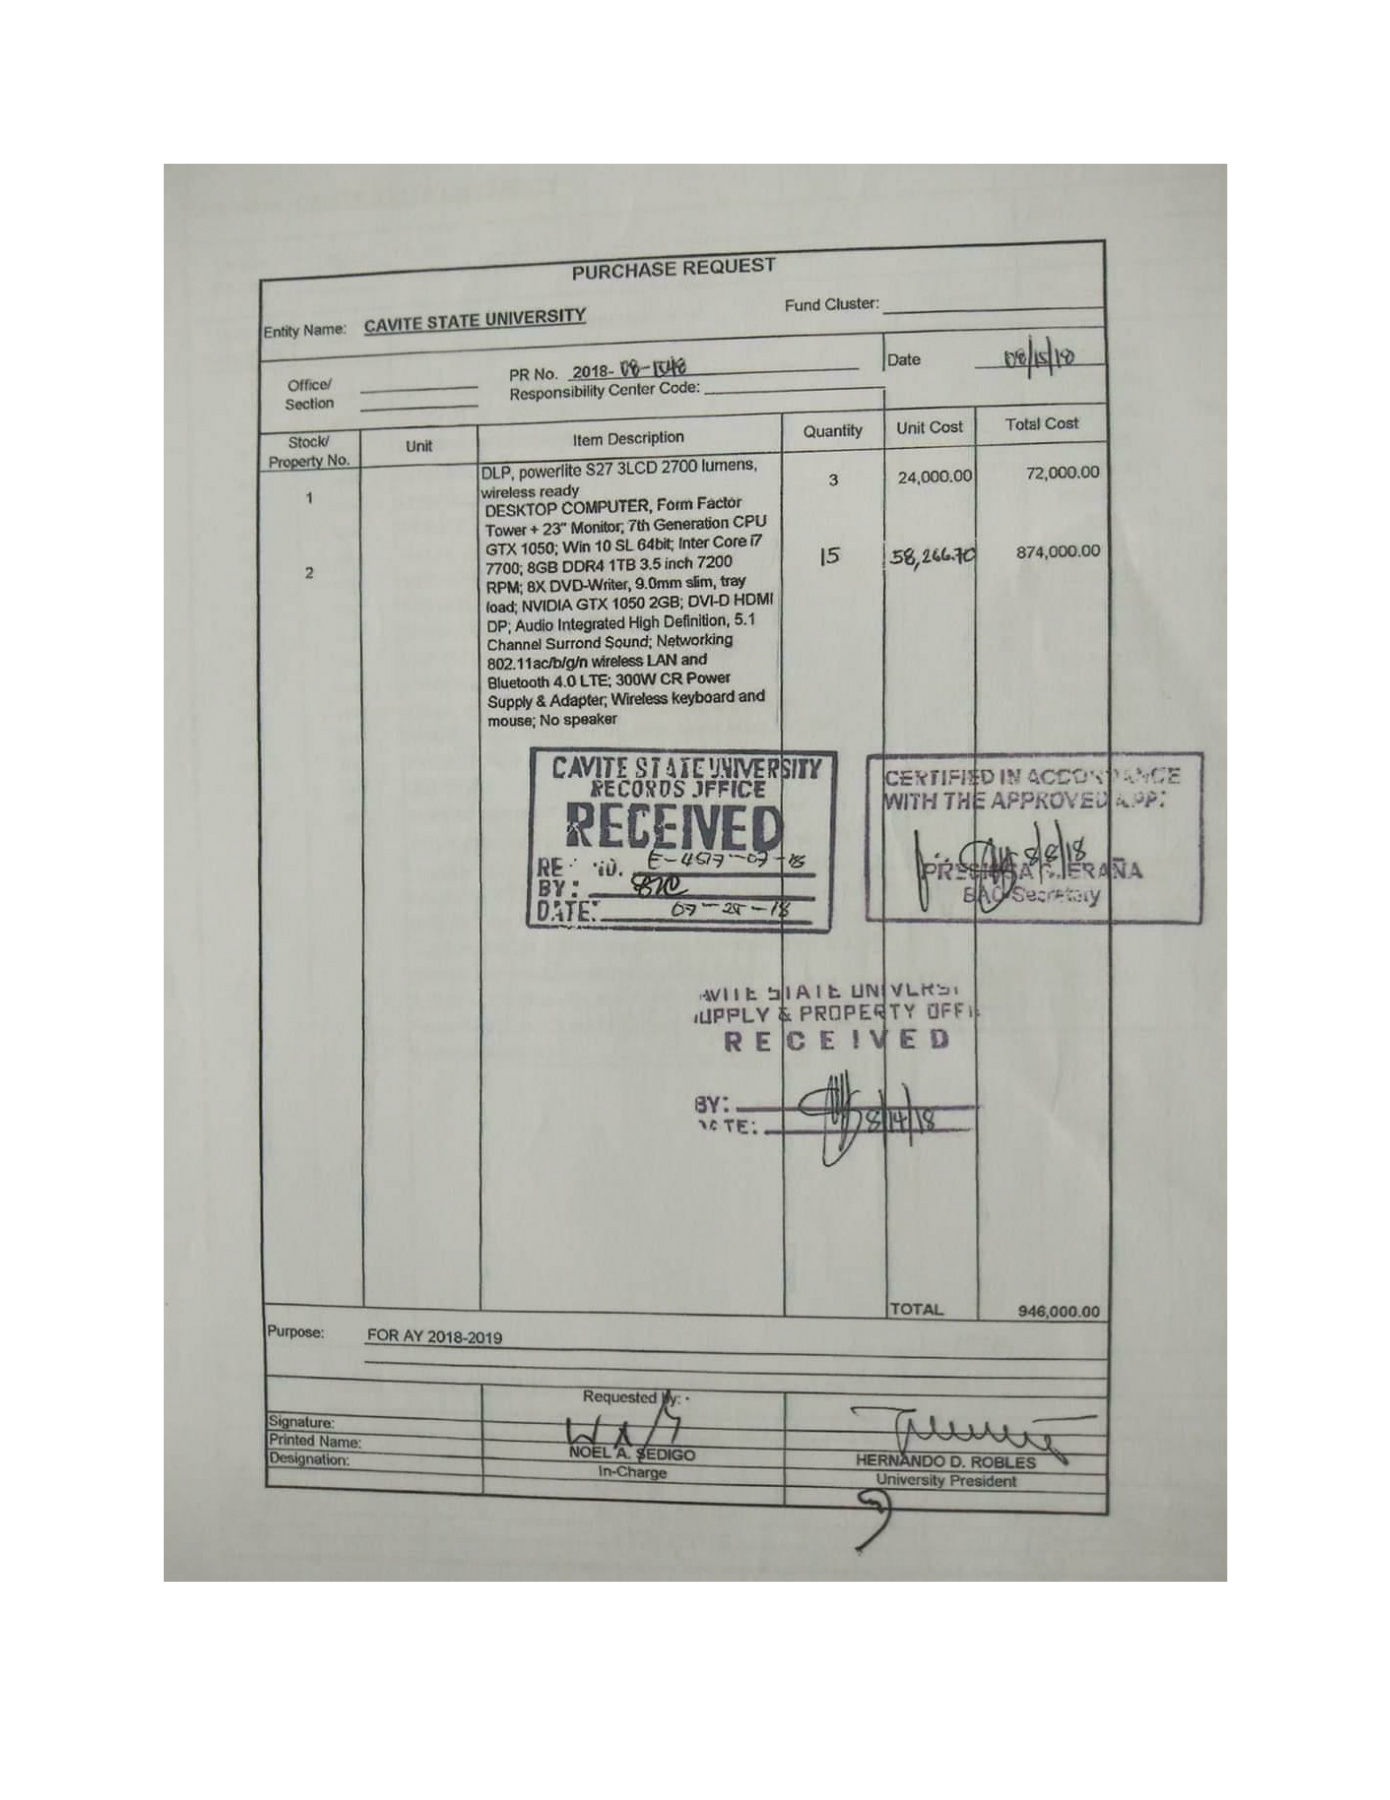 PURCHASE REQUEST
Entity Name: CAVITE STATE UNIVERSITY Fund Cluster:
Office/ Section
PR No. 2018- 08-
Responsibility Center Code:
Date 08/15/18
Stock/ Property No. Unit Item Description Quantity Unit Cost Total Cost
1 3 24,000.00 72,000.00
DLP, powerlite S27 3LCD 2700 lumens,
wireless ready
2 15 58,266.70 874,000.00
DESKTOP COMPUTER, Form Factor
Tower + 23" Monitor; 7th Generation CPU
GTX 1050; Win 10 SL 64bit; Inter Core i7
7700; 8GB DDR4 1TB 3.5 inch 7200
RPM; 8X DVD-Writer, 9.0mm slim, tray
load; NVIDIA GTX 1050 2GB; DVI-D HDMI
DP; Audio Integrated High Definition, 5.1
Channel Surrond Sound; Networking
802.11ac/b/g/n wireless LAN and
Bluetooth 4.0 LTE; 300W CR Power
Supply & Adapter; Wireless keyboard and
mouse; No speaker
CAVITE STATE UNIVERSITY
RECORDS OFFICE
RECEIVED
BY:
DATE:
CERTIFIED IN ACCORDANCE
WITH THE APPROVED APP:
8/8/18
BAC Secretary
STATE
PROPERTY
RECEIVED
BY:
8/14/18
TOTAL 946,000.00
Purpose: FOR AY 2018-2019
Requested by:
Signature:
Printed Name: NOEL A. SEDIGO HERNANDO D. ROBLES
Designation: In-Charge University President